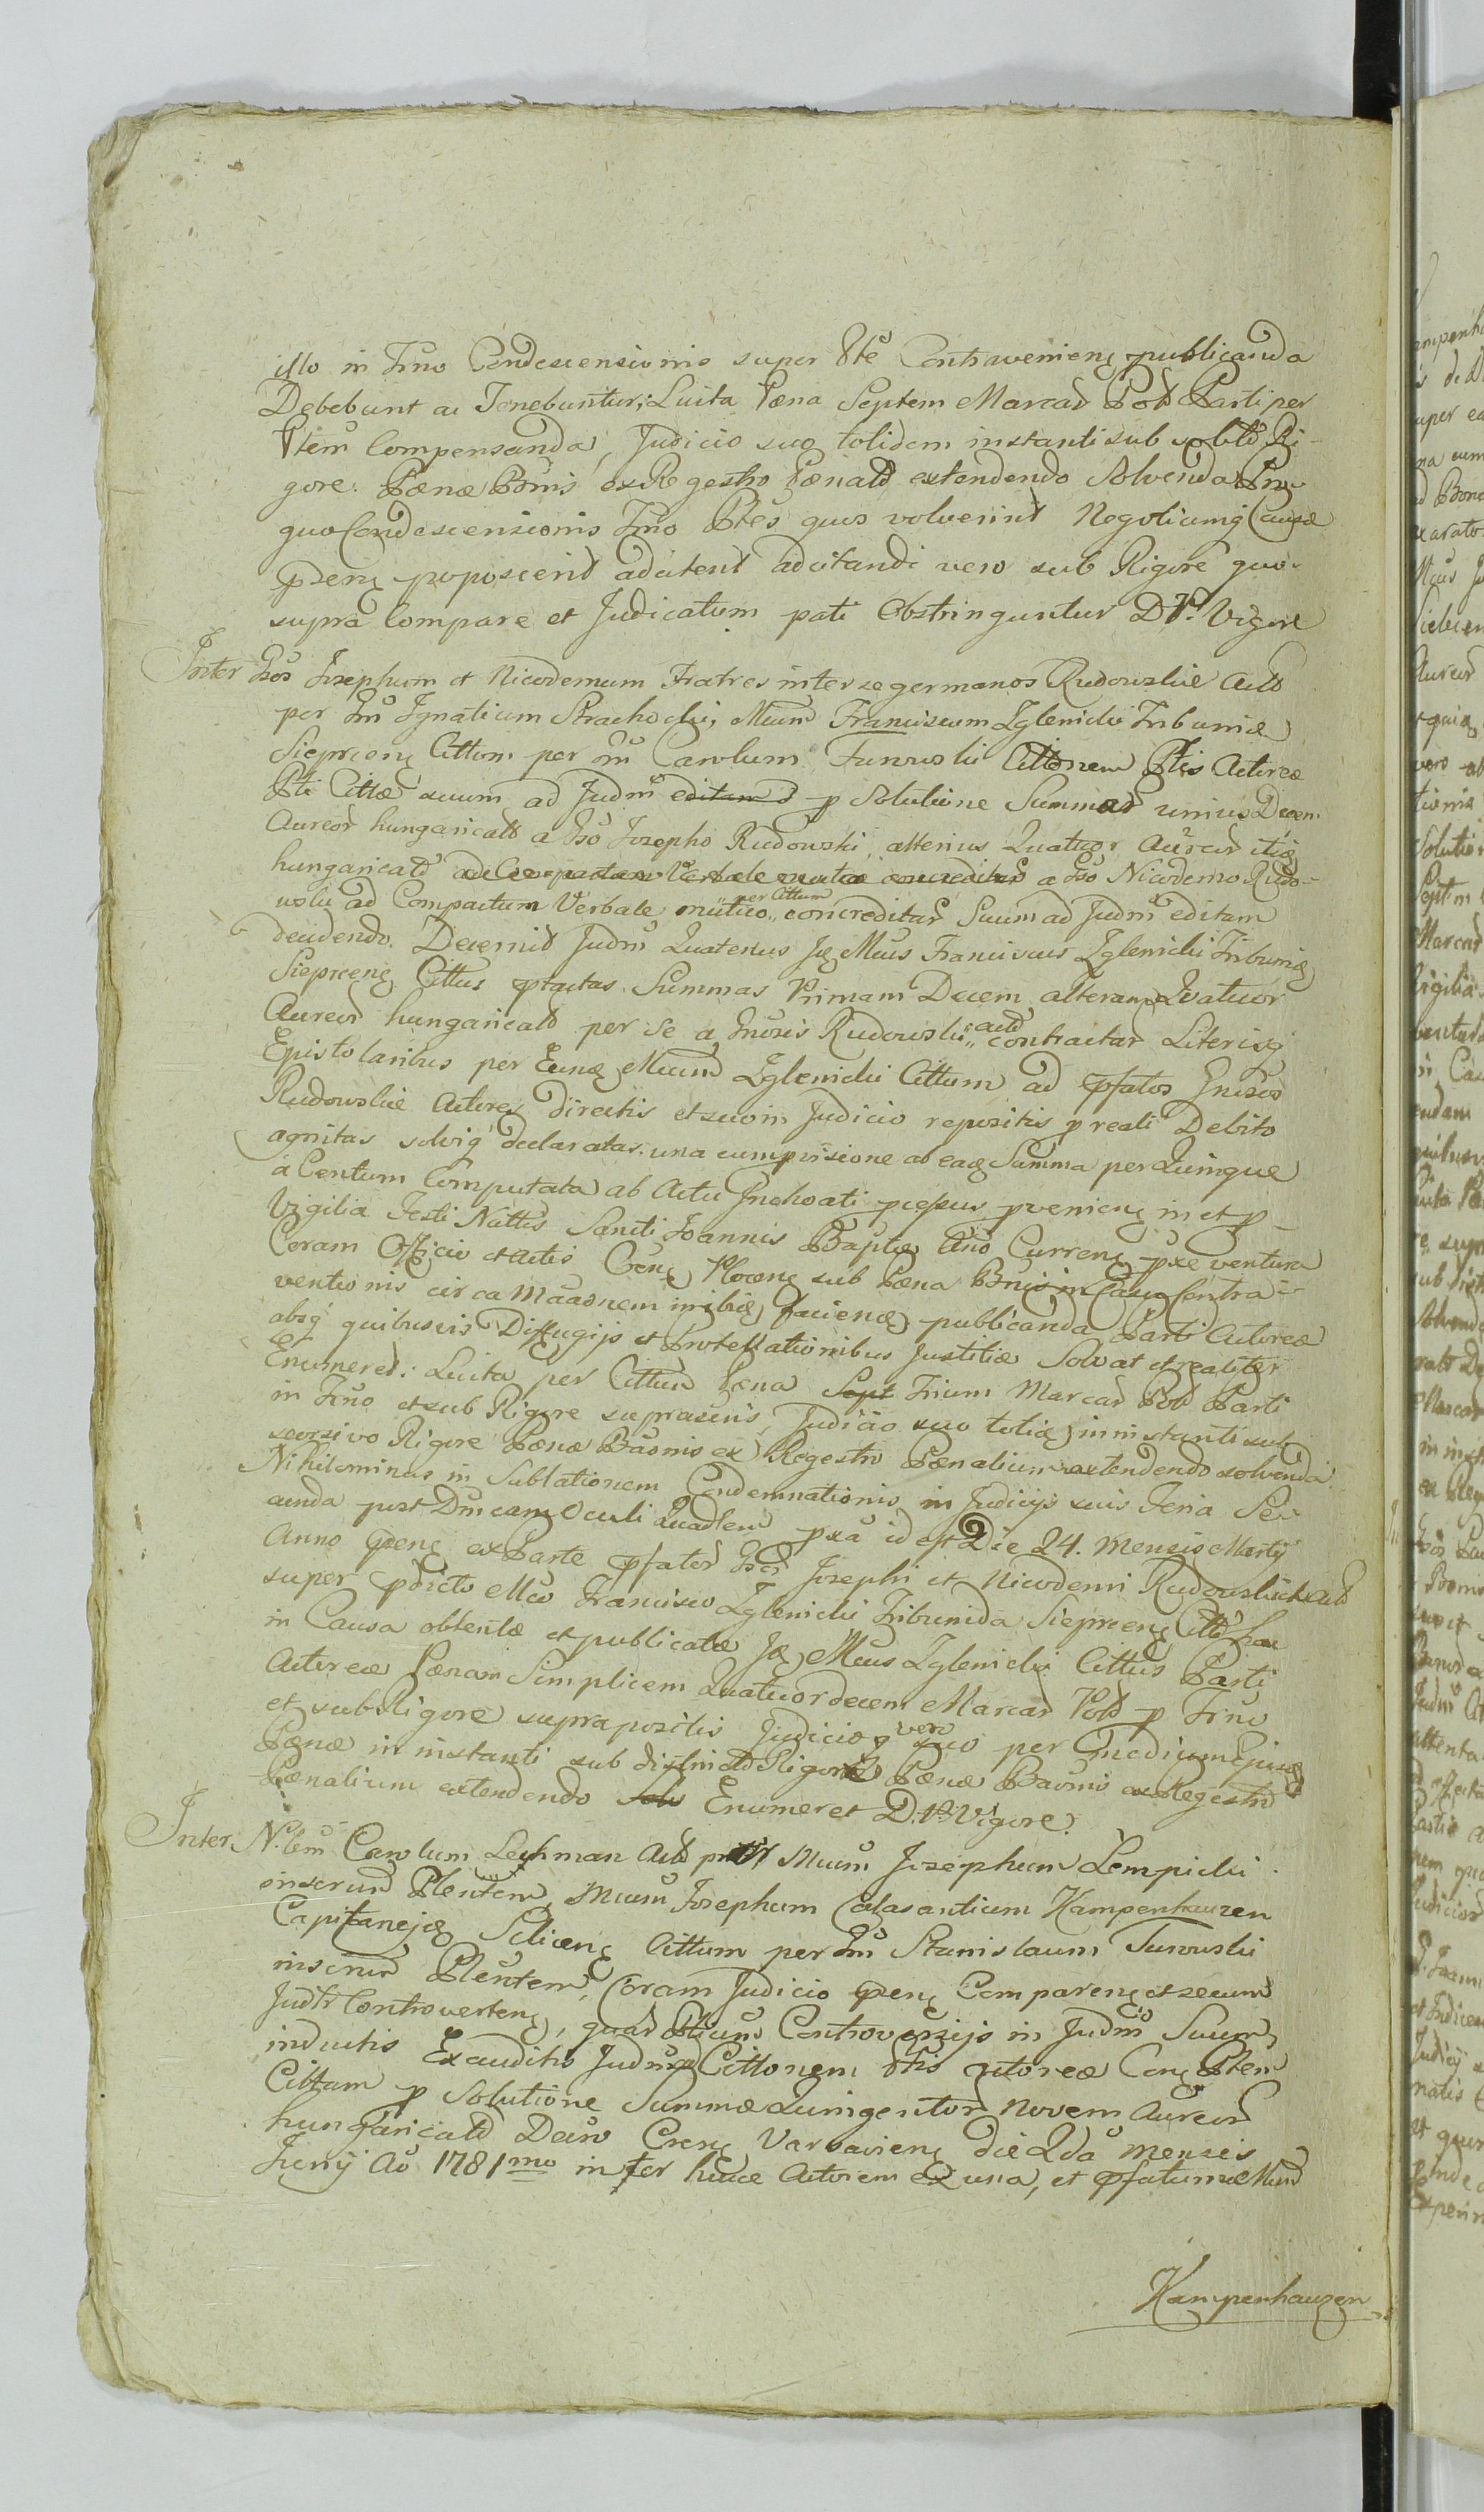 illo in Trno Condescensionis super Pte ContravenienĘ publicanda
Debebunt ac Tenebuntur; Luita Pæna Septem Marcar Pol Parti per
Ptem Compensanda, Judicio suo totidem instanti sub Ri-
gore. Pænæ Bõnis ex Regestro Pænal extendendo Solvenda In
quo Condescensionis Trno Ptes quos volverint Negotiumq Causæ
pñenę poposcerit adcitent adcitandi vero sub Rigore quo
supra Compare et Judicatum pati Obstringuntur D Pti Vigore
Inter Gsos Josephum et Nicodemum Fratres inter se germanos Rudowskie Act
per Gm Ignatium Strachocki, Mcum Franciscum Zglenicki Tribunid
Sieprcenę Cittum per Gm Carolum Turowski Cittonem Ptis Actoreæ
Pti Cittæ suum ad Judm editam p Solutione Summar unius Decem
Aureor hungarical a Gso Josepho Rudowski, alterius Quatuor Aureor itid
hungarical ad Compactum Verbale mutuo concreditar a Gso Nicodemo Rudo-
wski ad Compactum Verbale mutuo per Cittum concreditar Suum ad Judm editam
decidendo. Decernit Judm Quatenus Jđ Mcus Franciscus Zglenicki Tribunid
Sieprcenę Cittus ptactas Summas Primam Decem alteram Quatuor
Aureor hungarical per se a Gnosis Rudowskie act contractas Literisq
Epistolaribus per Eund Mcum Zglenicki Cittum ad pfatos Gnosos
Rudowskie Actores directis et suo in Judicio repositis p reali Debito
agnitas solviq declaratas una cum pvisione ab ead Summa per Quinque
a Centum Computata ab Actu Inchoati pcessus pvenienę in et p
Vigilia Festi Nattis Sancti Joannis Baptæ Año Currenę pxe ventura
Coram Officio et Actis Crenę Plocenę sub Pæna Bñis in Casu Contra-
ventionis circa Maaonem inibid faciend publicanda Parti Actoreæ
absq quibusvis Diffugijs et Protellationibus Justitiæ Solvat et realiter
Enumeret: Luita per Cittum Pæna Sept Trium Marcar Pol Parti
in Trno et sub Rigore suprascris, Judicio suo totid in instanti sub
seorsivo Rigore Pænæ Bãonis ex Regestro Pænalium extendendo solvenda
Nihilominus in Sublationem Condemnationis in Judicijs suis Feria Se-
cunda post Dnicam Oculi Quadlem pxa id est Die 24. Mensis Martij
Anno pñenę ex Parte pfator Gsor Josephi et Nicodemi Rudowskich Act
super pdicto Mco Francisco Zglenicki Tribunida Sieprcenę Citto hac
in Causa obtentæ et publicatæ Jđ Mcus Zglenicki Cittus Parti
Actoreæ Pænam Simplicem Quatuordecem Marcar Pol p Trno
et sub Rigore supra positis Judicio vero suo per Medium Ejusd
Pænæ in instanti sub districto Rigore Pænæ Bãonis ex Regestro
Pænalium extendendo solv Enumeret D. Pti Vigore.
Inter Nlem Carolum Lehman Act Mcum Josephum Lempicki
inscrum Plentem, Mcum Josephum Calasantium Kampenhauzen
Capitanejd Cittum per Gm Stanislaum Turowski
inscrum Plentem, Coram Judicio pñenę Comparenę et secum
Judtr Controvertenę, quar Ptium Controversijs in Judm Suum
inductis Exauditis Judm Cittonem Ptis Actoreæ Conę Ptem
Cittam p Solutione Summæ Quingentor Novem Aureor
hungarical Decro Crenę Varsavienę die 2da Mensis
Junij Ao 1781mo inter hunce Actorem ex una, et pfatum Mcum
Kampenhauzen